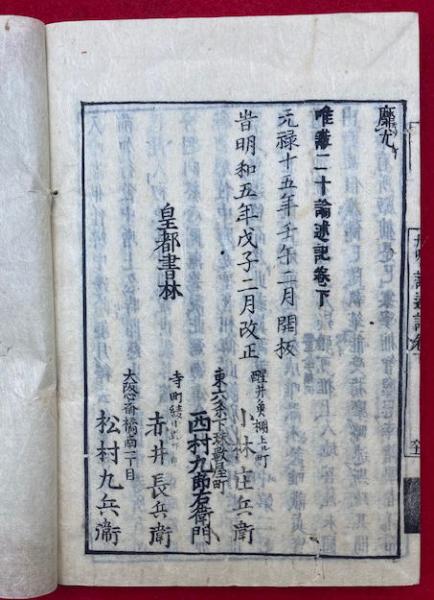 靡尤
唯識二十論述記卷下
元禄十五年壬午二月開板
旹明和五年戊子二月改正
皇都書林
醒井魚棚上ル町
小林庄兵衛
東六条下珠数屋町
西村九郎右衛門
寺町綾小
赤井長兵衛
大阪心斎橋南一丁目
松村九兵衛